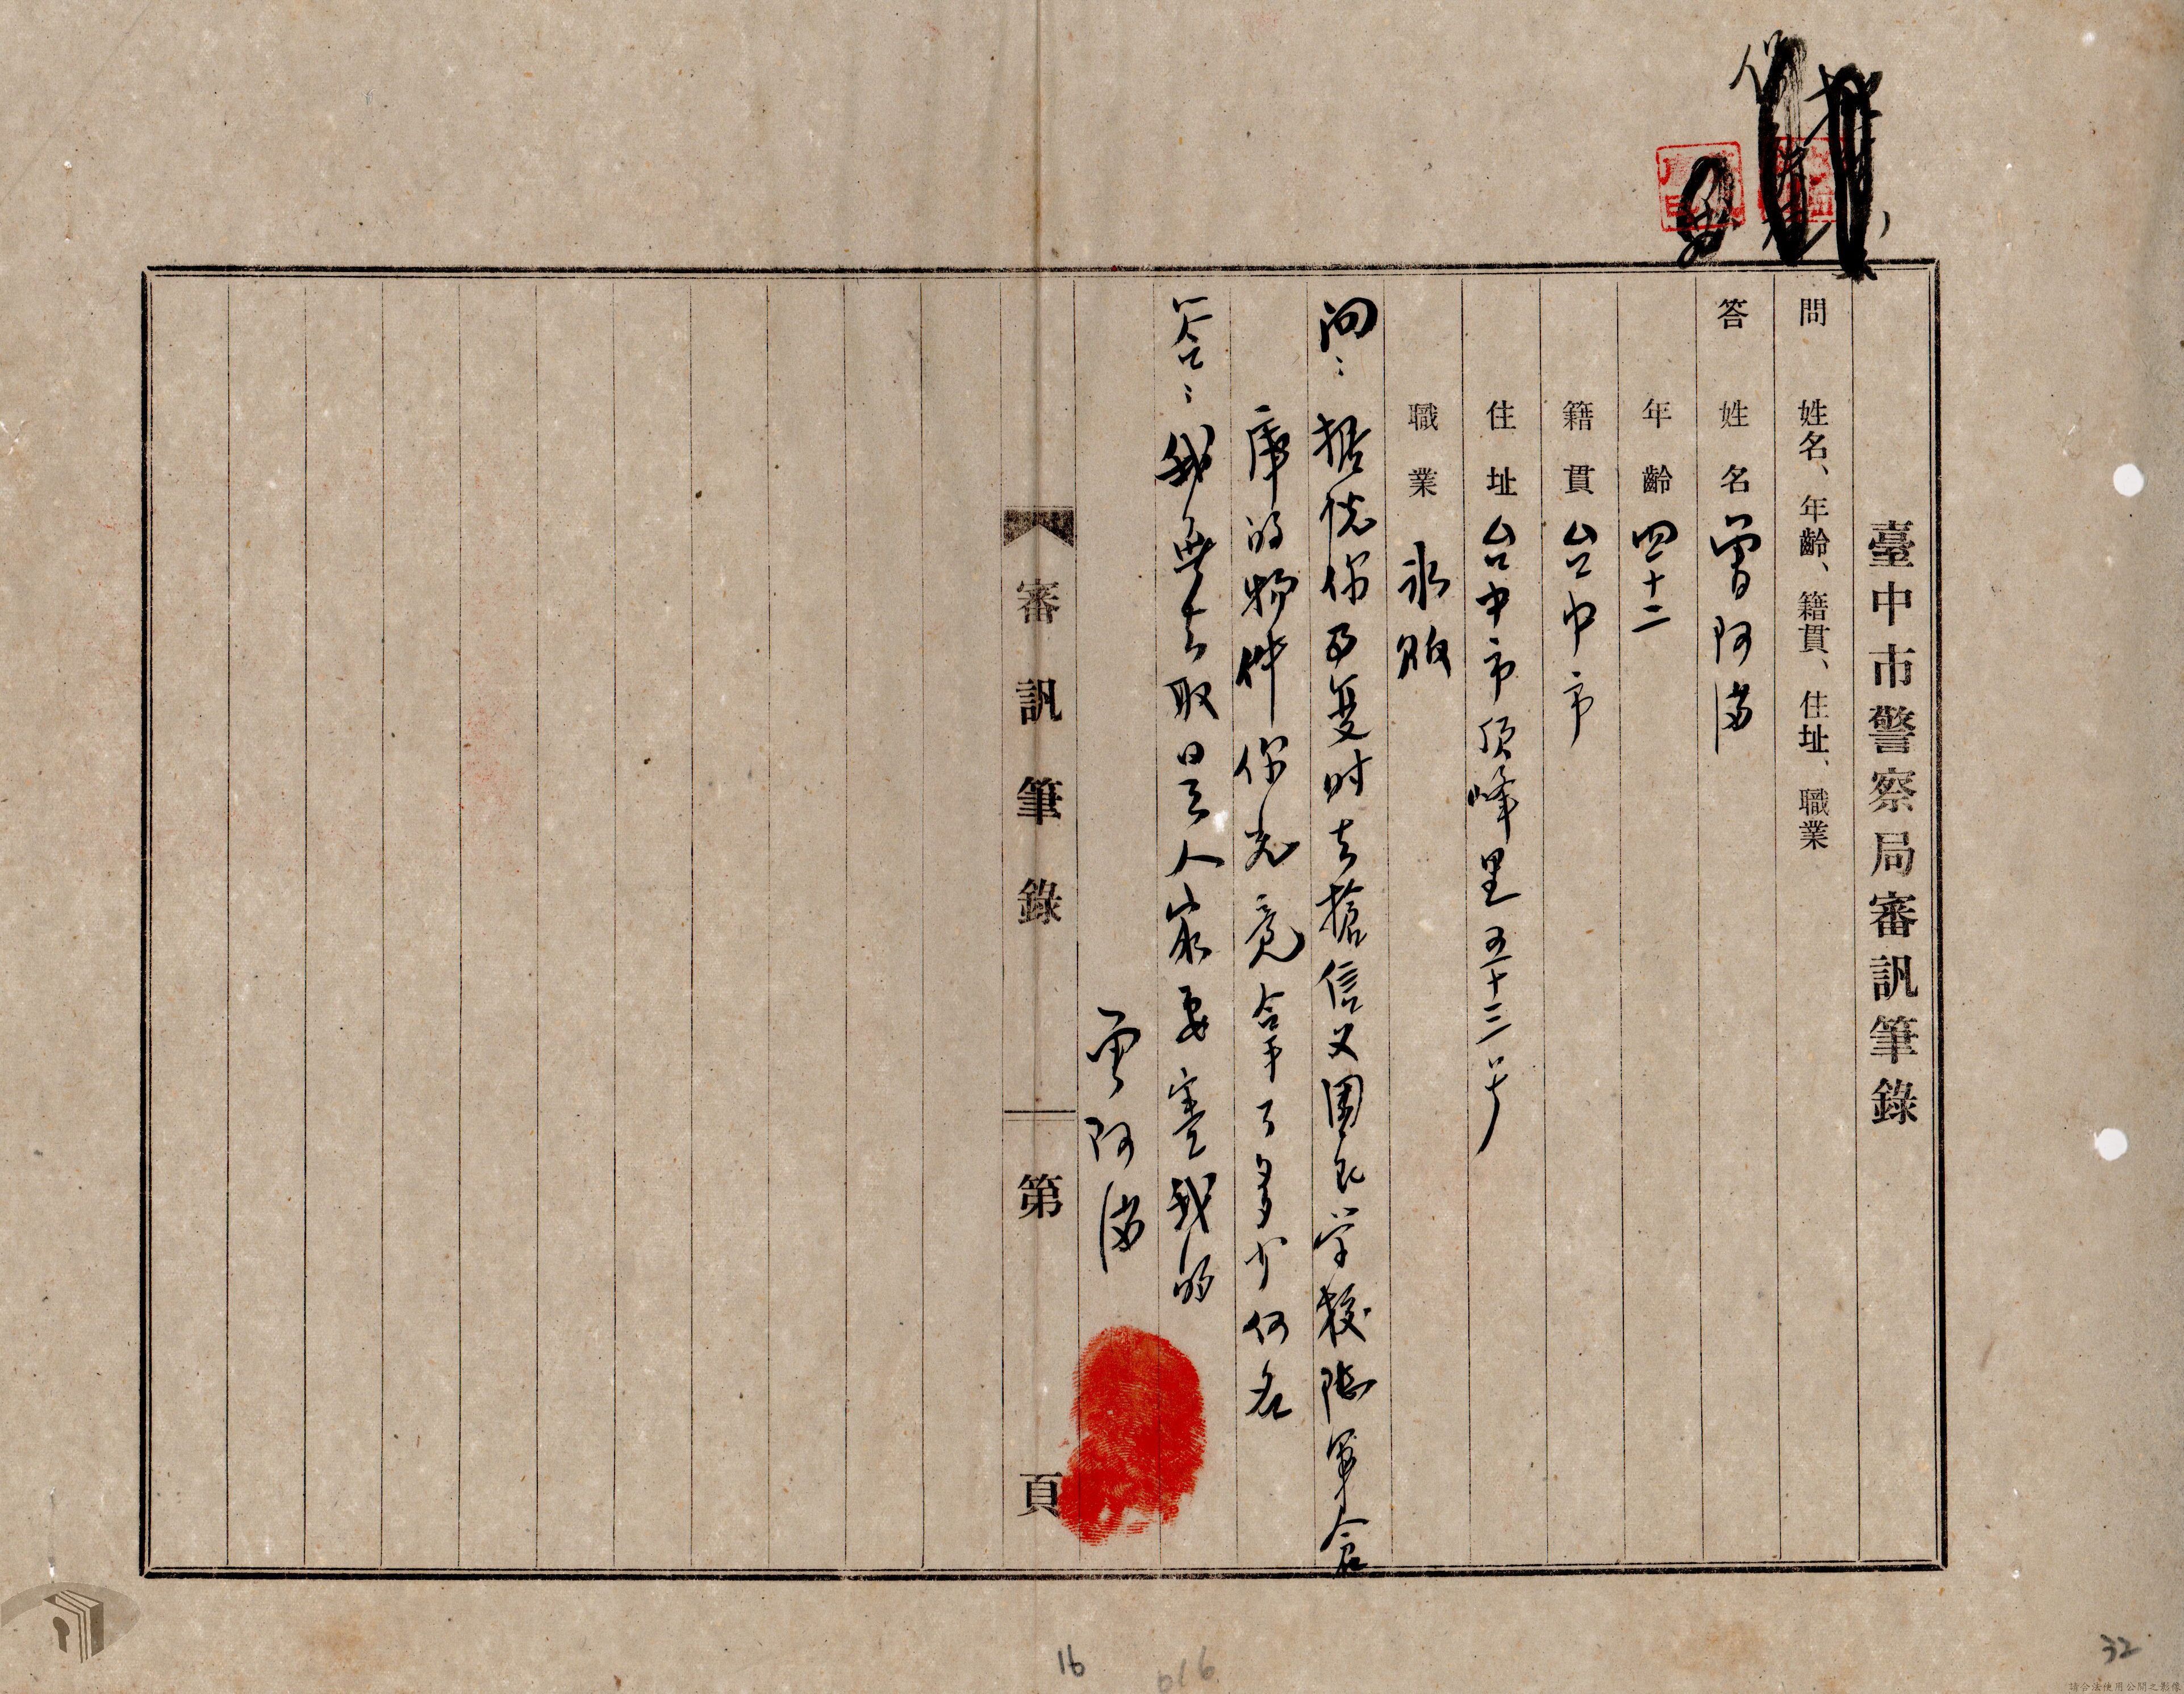 臺中市警察局審訊筆錄
問 姓名、年齡、籍貫、住址、職業
答 姓名 曾阿滿
年齡 四十二
籍貫 台中市
住址 台中市頂峰里五十三号
職業 氷敗
问：据供你事变时去搶信义国民学校陸軍倉
庫的物件你究竟拿了多少何名
答：我無去取是人家要害我的
曾阿滿
審訊筆錄 第 頁
16
32
請合法使用公開之影像